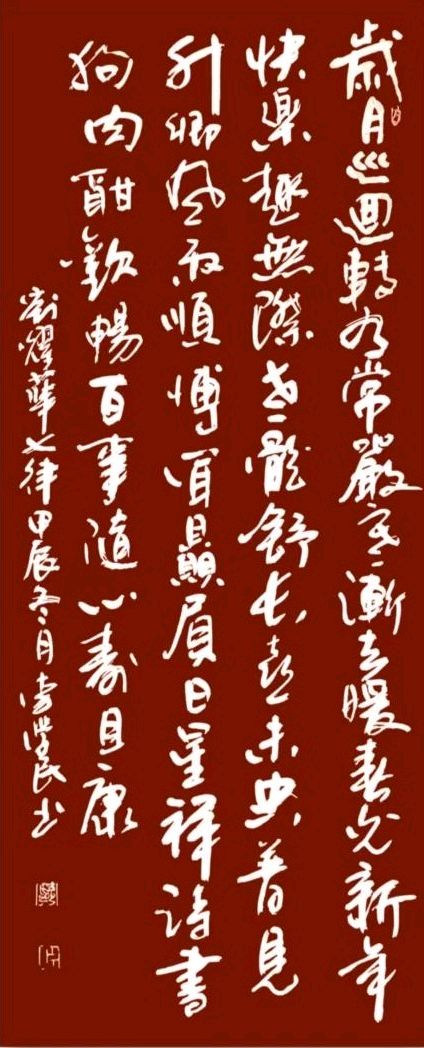 歲月巡迴轉有常嚴寒漸去暖春光新年
快樂趣無際龍舒長喜未央普見
升卿風雨順博顯日星祥詩書
狗肉酣歡暢百事隨心壽且康
劉耀華七律甲辰冬月民書